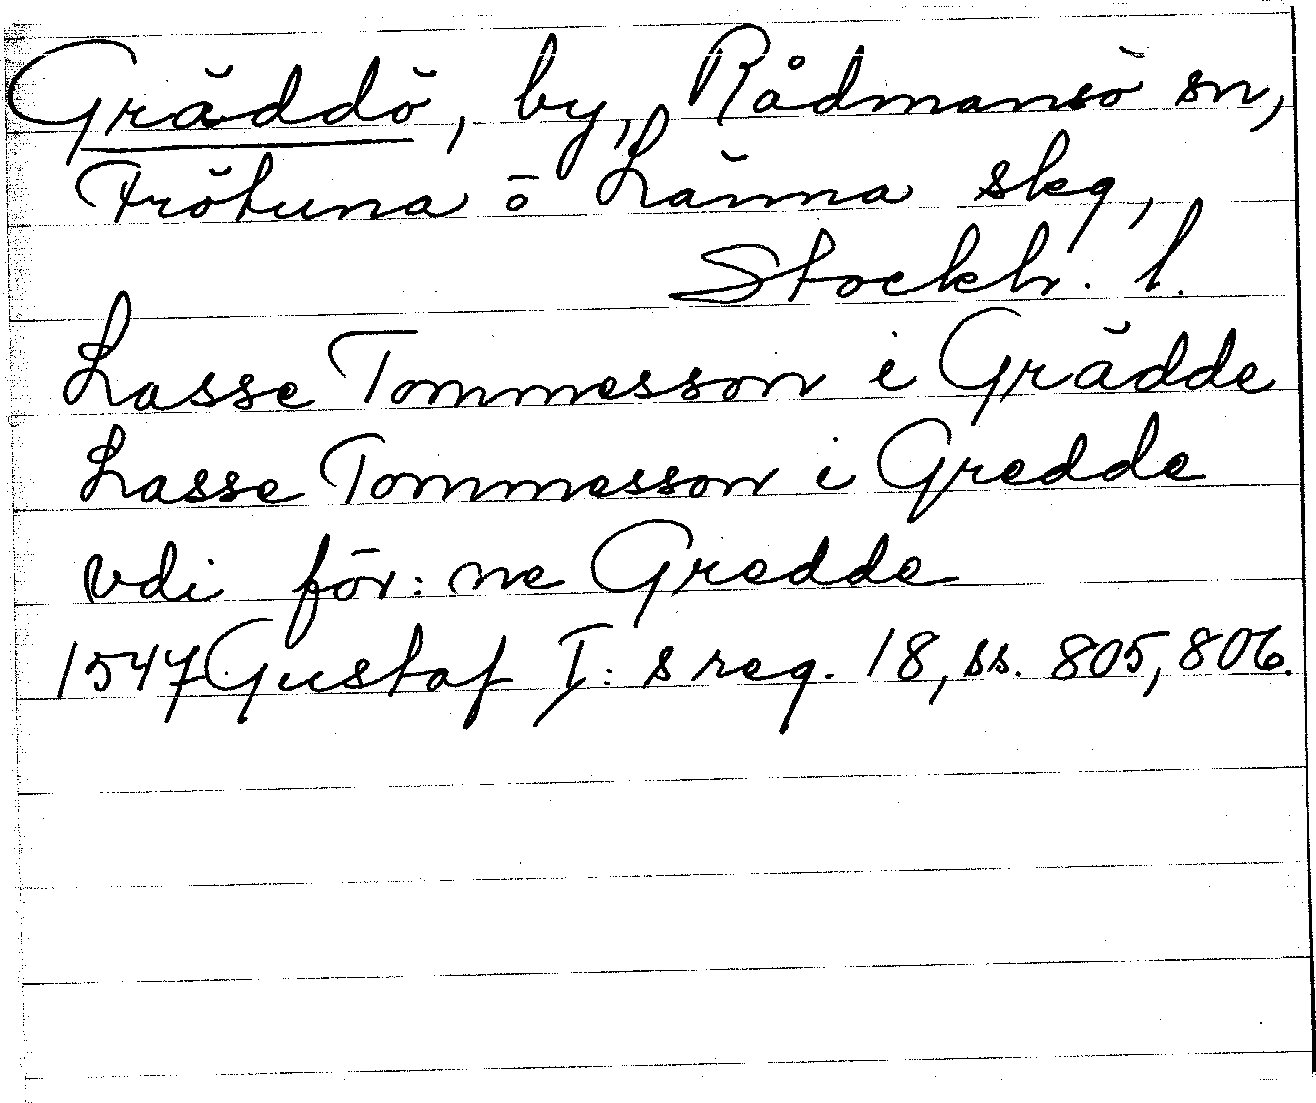 Gräddö, by, Rådmansö sn,
Frötuna o Länna skg,
Stockh. l.
Lasse Tommesson i Grädde
Lasse Tommesson i Gredde
vdi för:ne Gredde
1547 Gustaf I:s reg. 18, ss. 805, 806.